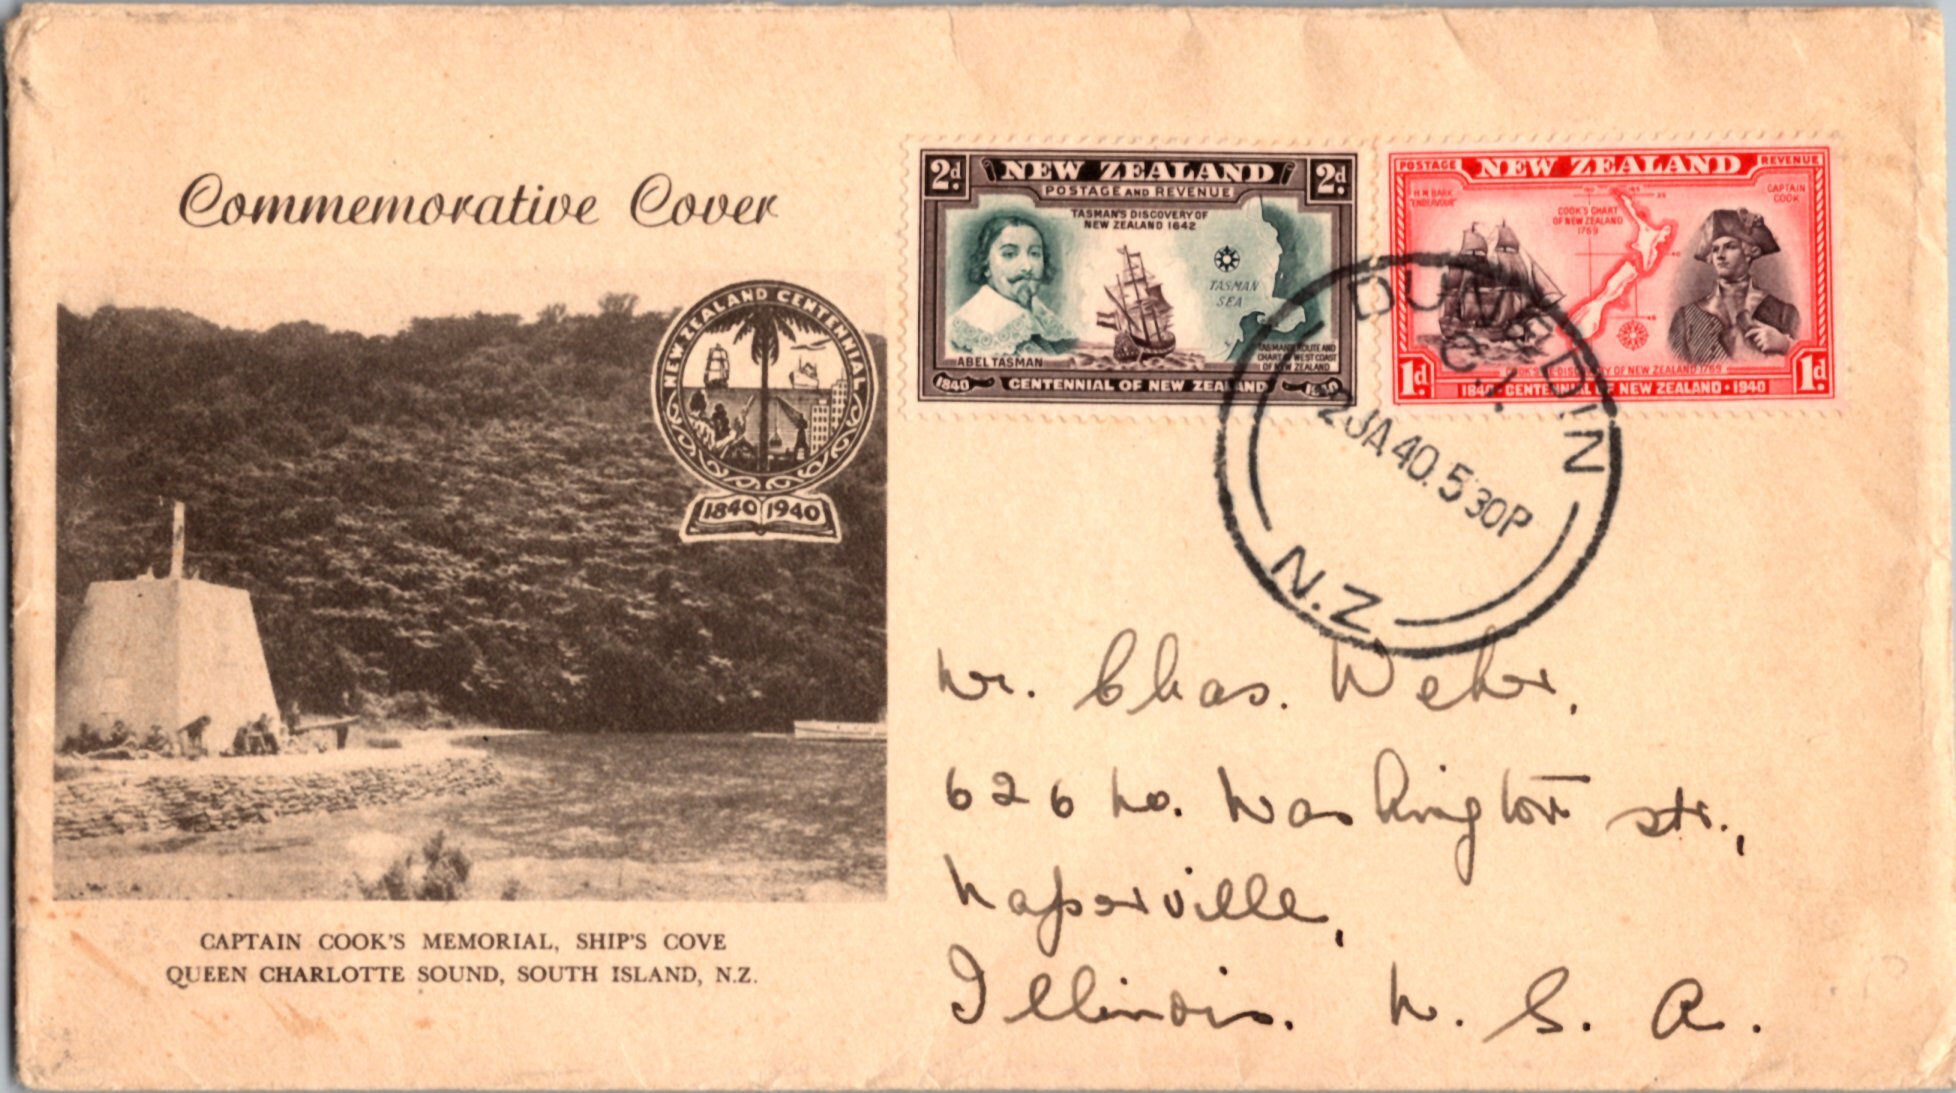 Commemorative Cover
NEW ZEALAND CENTENNIAL
1840 1940
CAPTAIN COOK'S MEMORIAL, SHIP'S COVE
QUEEN CHARLOTTE SOUND, SOUTH ISLAND, N.Z.
2d. NEW ZEALAND 2d.
POSTAGE AND REVENUE
TASMAN'S DISCOVERY OF
NEW ZEALAND 1642
TASMAN
SEA
ABEL TASMAN
TASMAN'S ROUTE AND
CHART OF WEST COAST
OF NEW ZEALAND
1840 CENTENNIAL OF NEW ZEALAND 1940
POSTAGE NEW ZEALAND REVENUE
H.M. BARK
"ENDEAVOUR"
COOK'S CHART
OF NEW ZEALAND
1769
CAPTAIN
COOK
COOK'S DISCOVERY OF NEW ZEALAND 1769
1d. 1840 · CENTENNIAL OF NEW ZEALAND · 1940 1d.
DUNEDIN
2 JA 40. 5 30P
N.Z.
Mr. Chas. Weber,
626 No. Washington Str.,
Naperville,
Illinois. U. S. A.